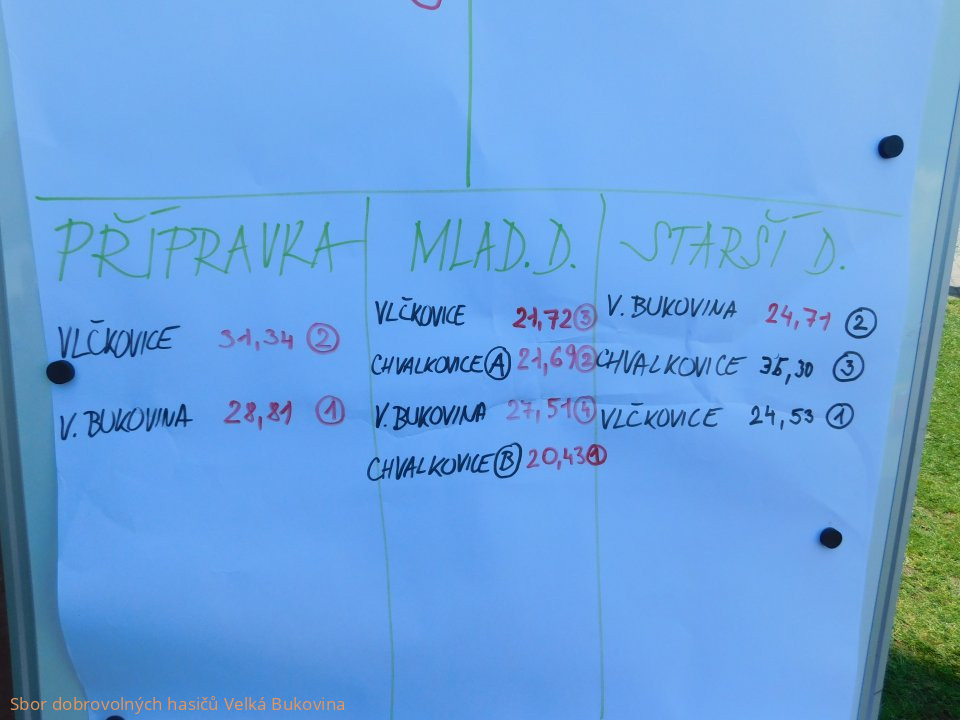 PŘÍPRAVKA
VLČKOVICE 31,34 2
V. BUKOVINA 28,81 1
MLAD. D.
VLČKOVICE 21,72 3
CHVALKOVICE A 21,69 2
V. BUKOVINA 27,51 4
CHVALKOVICE B 20,43 1
STARŠÍ D.
V. BUKOVINA 24,71 2
CHVALKOVICE 35,30 3
VLČKOVICE 24,53 1
Sbor dobrovolných hasičů Velká Bukovina